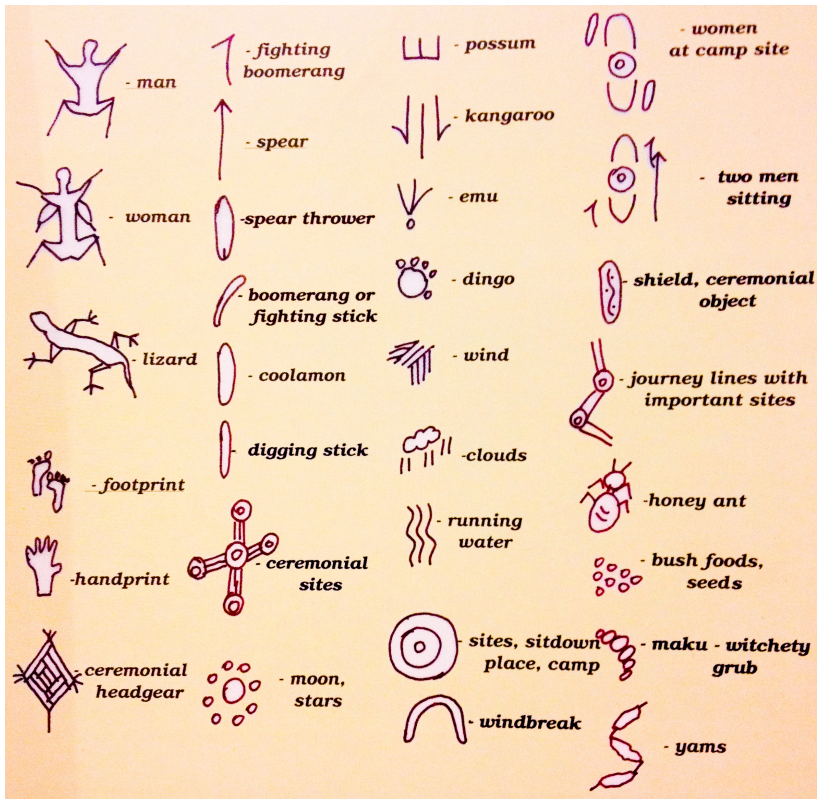 - man
- woman
- lizard
- footprint
-handprint
- ceremonial
headgear
- fighting
boomerang
- spear
-spear thrower
- boomerang or
fighting stick
- coolamon
- digging stick
- ceremonial
sites
- moon,
stars
- possum
- kangaroo
- emu
- dingo
- wind
-clouds
- running
water
- sites, sitdown
place, camp
- windbreak
- women
at camp site
- two men
sitting
- shield, ceremonial
object
- journey lines with
important sites
-honey ant
- bush foods,
seeds
- maku - witchety
grub
- yams